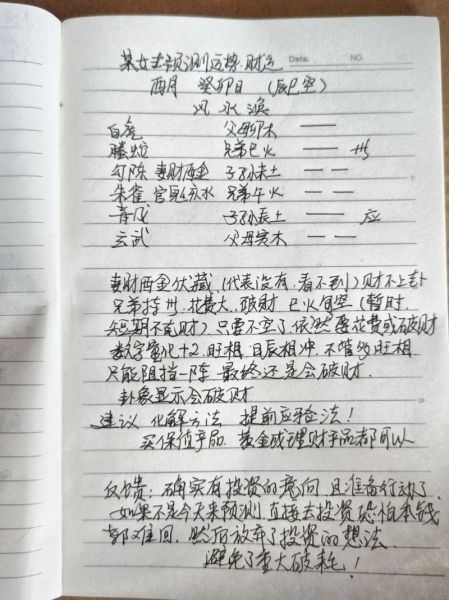 某女士预测运势.财运 Date. NO.
酉月 癸卯日 (辰巳空)
风水涣
白虎 父母卯木
螣蛇 兄弟巳火 世
勾陈 妻财酉金 子孙未土
朱雀 官鬼亥水 兄弟午火
青龙 子孙辰土 应
玄武 父母寅木
妻财酉金伏藏,(代表没有,看不到)财不上卦
兄弟持世,花费大,破财 巳火旬空(暂时,
短期不破财)只要不空了依然要花费或破财
数字量化+2 旺相 日辰相冲,不管多旺相
只能阻挡一阵 最终还是会破财.
卦象显示会破财
建议 化解方法 提前应验法!
买保值产品,黄金或理财产品都可以
反馈:确实有投资的意向 且准备行动了
如果不是今天来预测,直接去投资恐怕本钱
都难回,然后放弃了投资的想法.
避免了重大破耗!